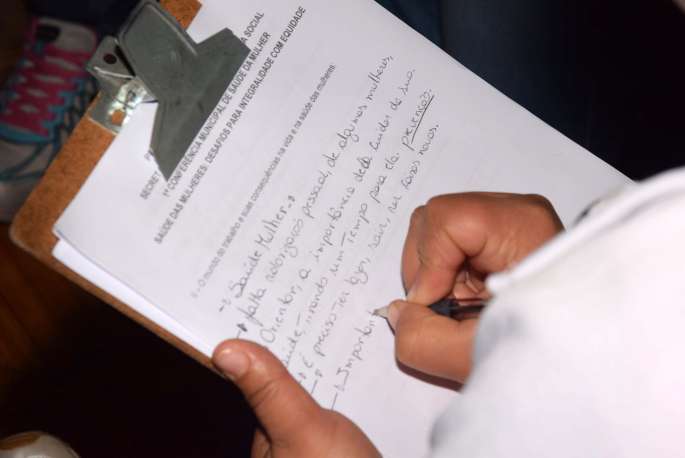 A SOCIAL
SECRET
1ª CONFERÊNCIA MUNICIPAL DE SAÚDE DA MULHER
SAÚDE DAS MULHERES: DESAFIOS PARA INTEGRALIDADE COM EQUIDADE
II - O mundo do trabalho e suas consequências na vida e na saúde das mulheres.
Saúde Mulher
falta valorização pessoal, de algumas mulheres,
Orientar, a importância dela cuidar de sua
saúde, tirando um tempo para ela. prevenção.
É preciso ter lazer, sair, ver coisas novas.
Importan